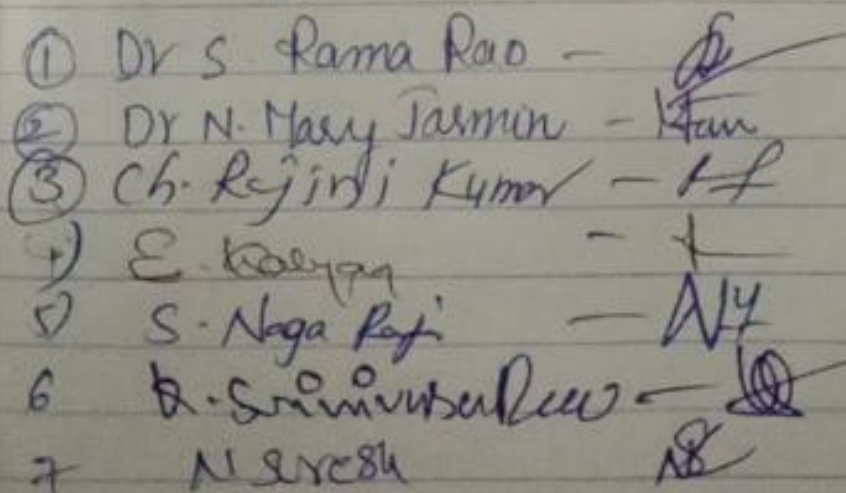 ① Dr S Rama Rao -
② Dr N. Mary Jasmin -
③ Ch. Rajini Kumar -
4) E. Kalyan -
5) S. Naga Raji -
6 K. Srinivasa Rao -
7 N Suresh